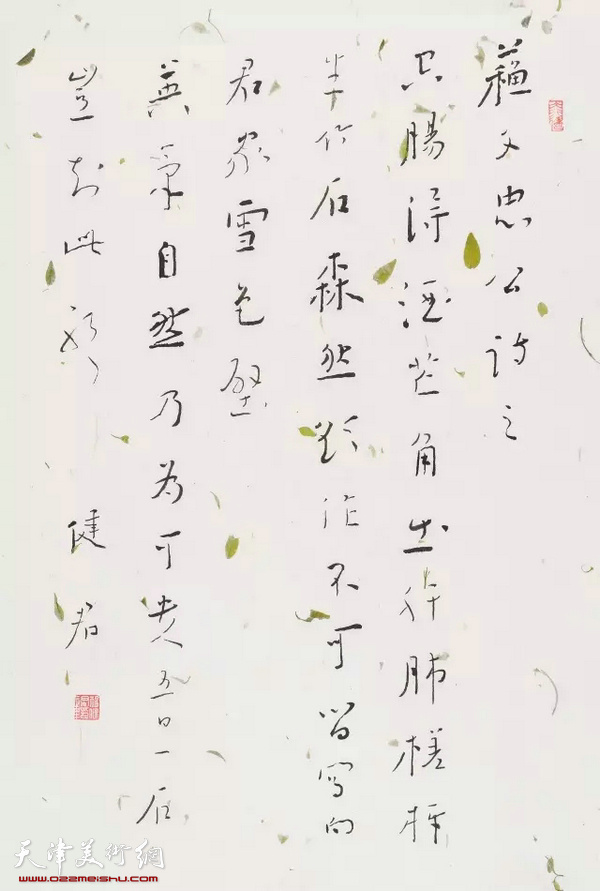 蘇文忠公詩之
空腸得酒芒角出肝肺槎枒
生竹石森然欲作不可留寫向
君家雪色壁
英氣自然乃為可貴五日一石
豈知此耶 健君
天津美術網
www.022meishu.com